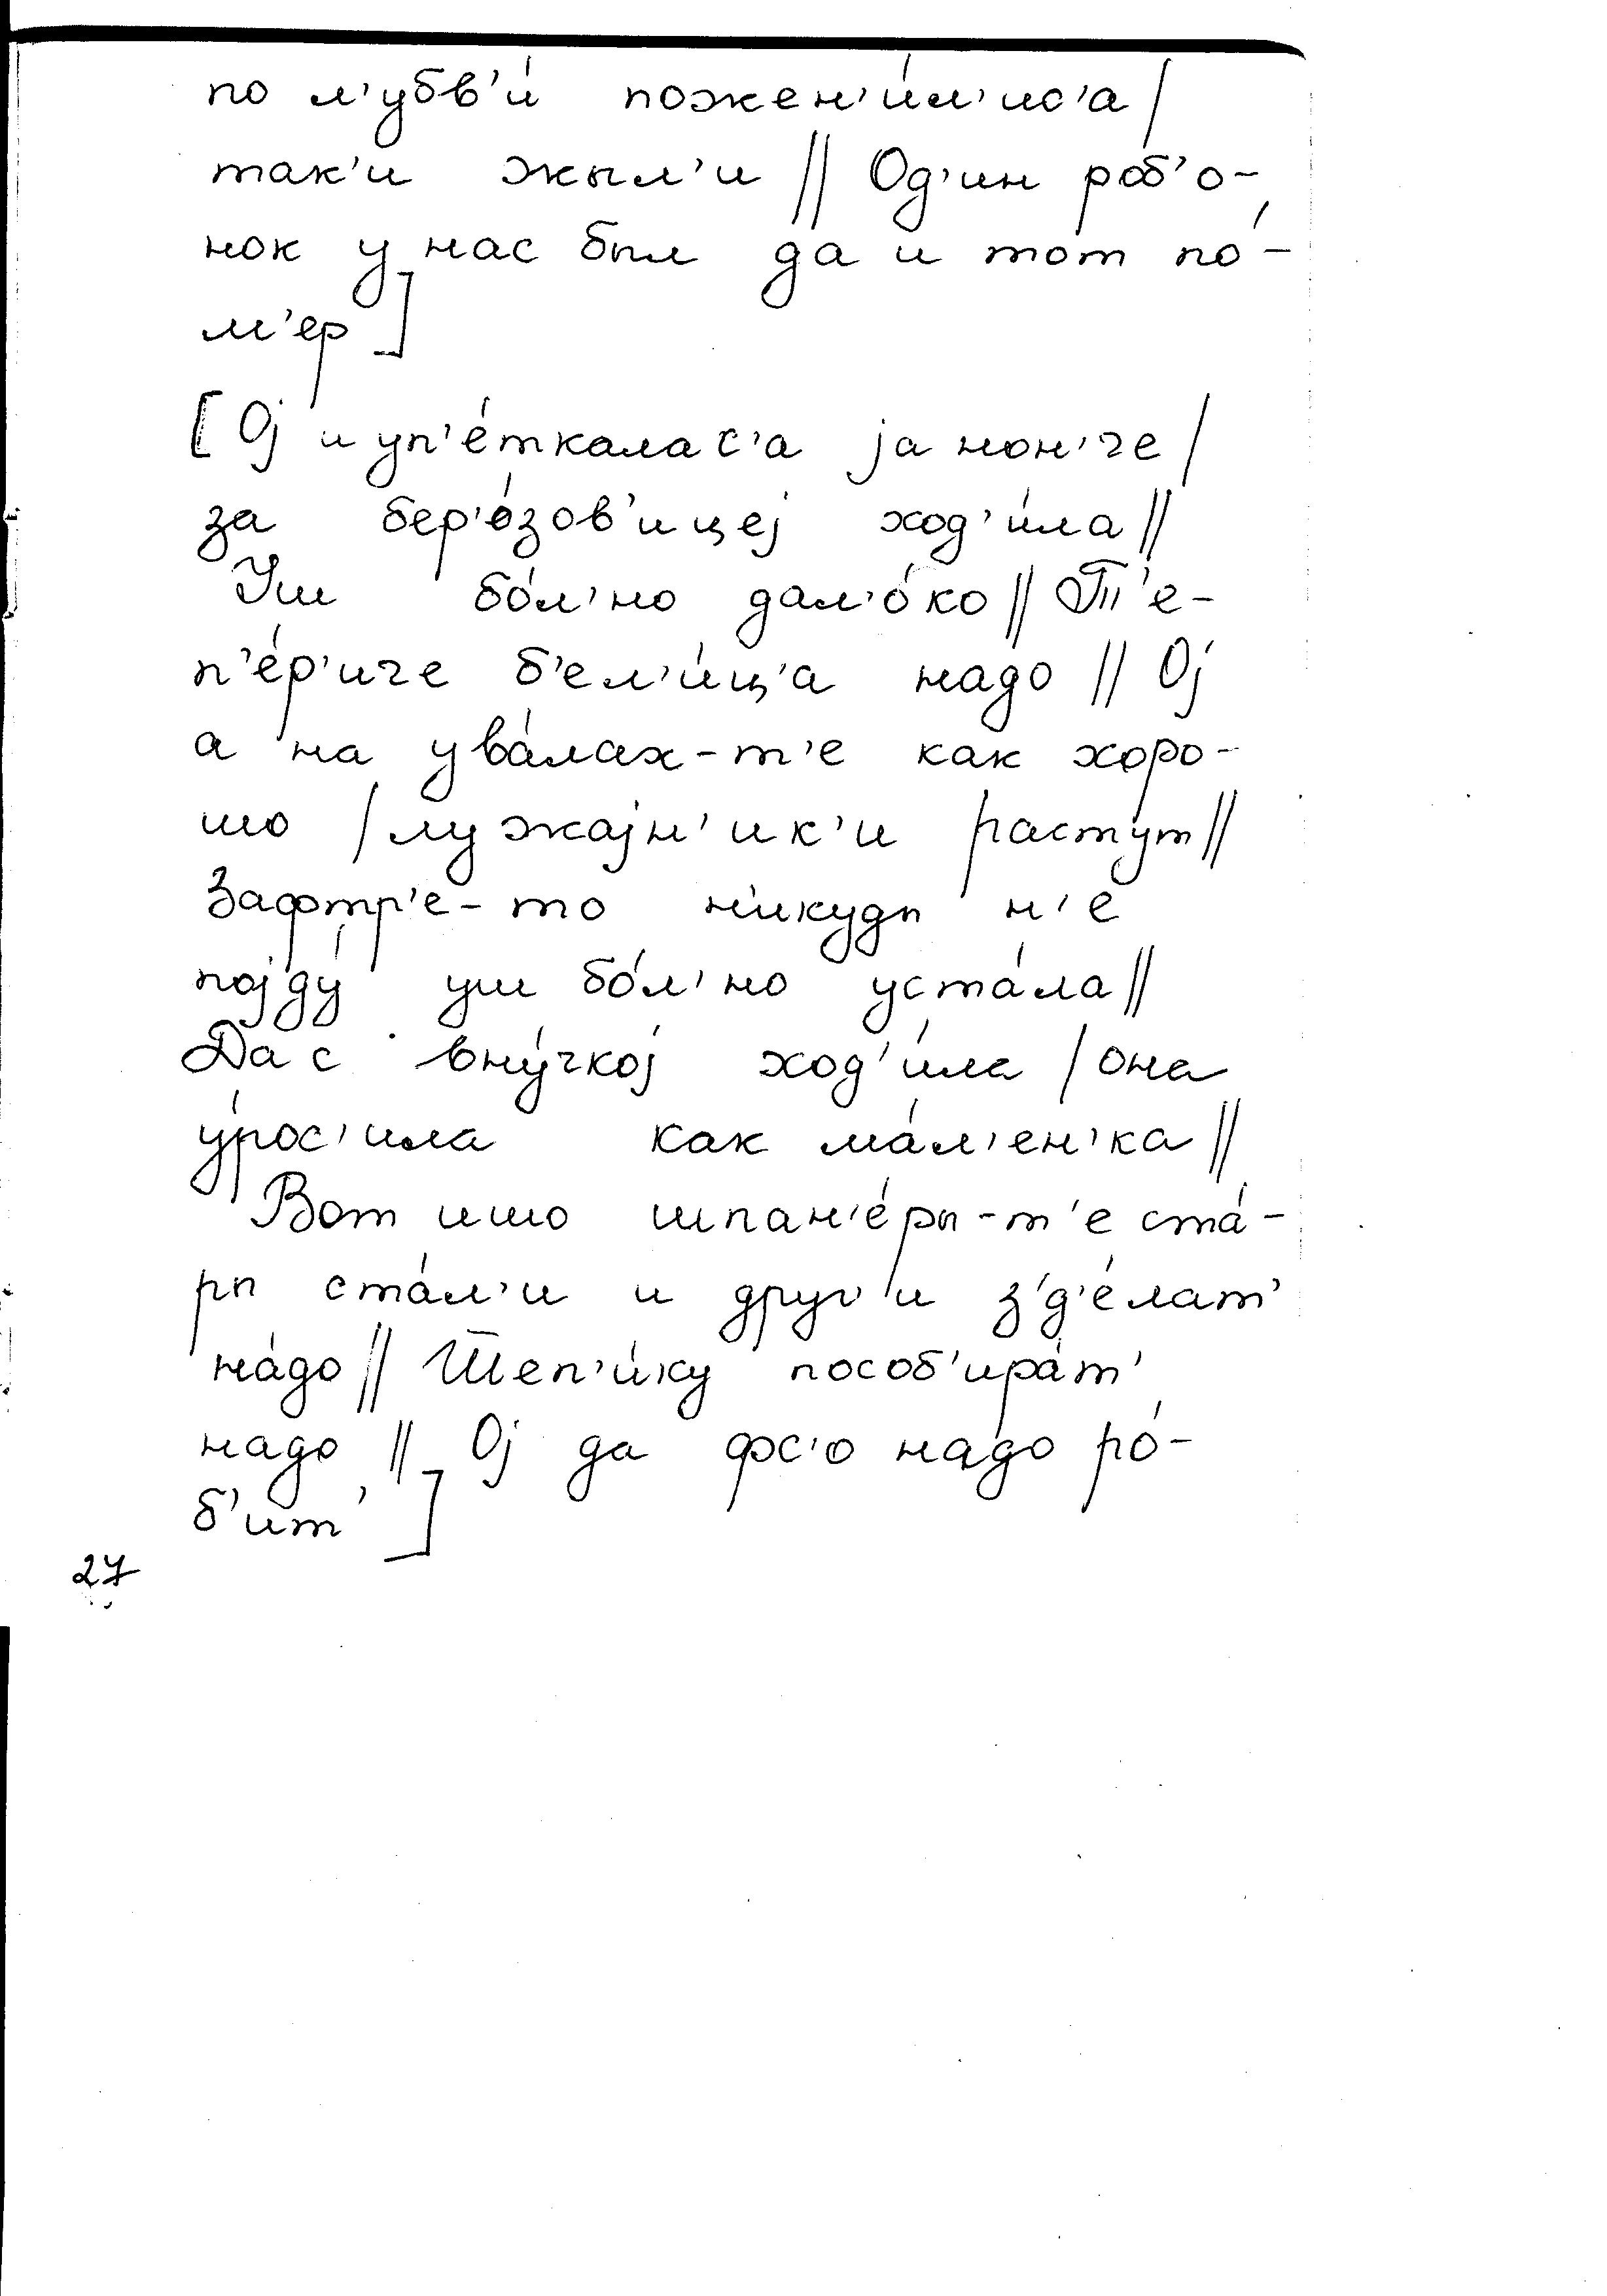 по л'убв'и́ пожен'и́л'ис'а /
так'и жыл'и // Од'ин роб'о-
нок у нас был да и тот по́-
м'ер ]
[ Оj и уп'е́ткалас'а jа нон'че /
за бер'о́зов'ицеj ход'и́ла //
Уш бо́л'но дал'о́ко // Т'е-
п'е́р'иче б'ел'и́ц'а надо // Оj
а на ува́лах-т'е как хоро-
шо / лужаjн'ик'и расту́т //
Зафтр'е-то никуды н'е
поjду́ уш бо́л'но уста́ла //
Да с вну́чкоj ход'и́ла / она
у́рос'ила как ма́л'ен'ка //
Вот ишо шпан'е́ры-т'е ста́-
ры ста́л'и и друг'и з'д'е́лат'
на́до // Щеп'и́ку пособ'ира́т'
надо // Оj да фс'о надо ро́-
б'ит' ]
27